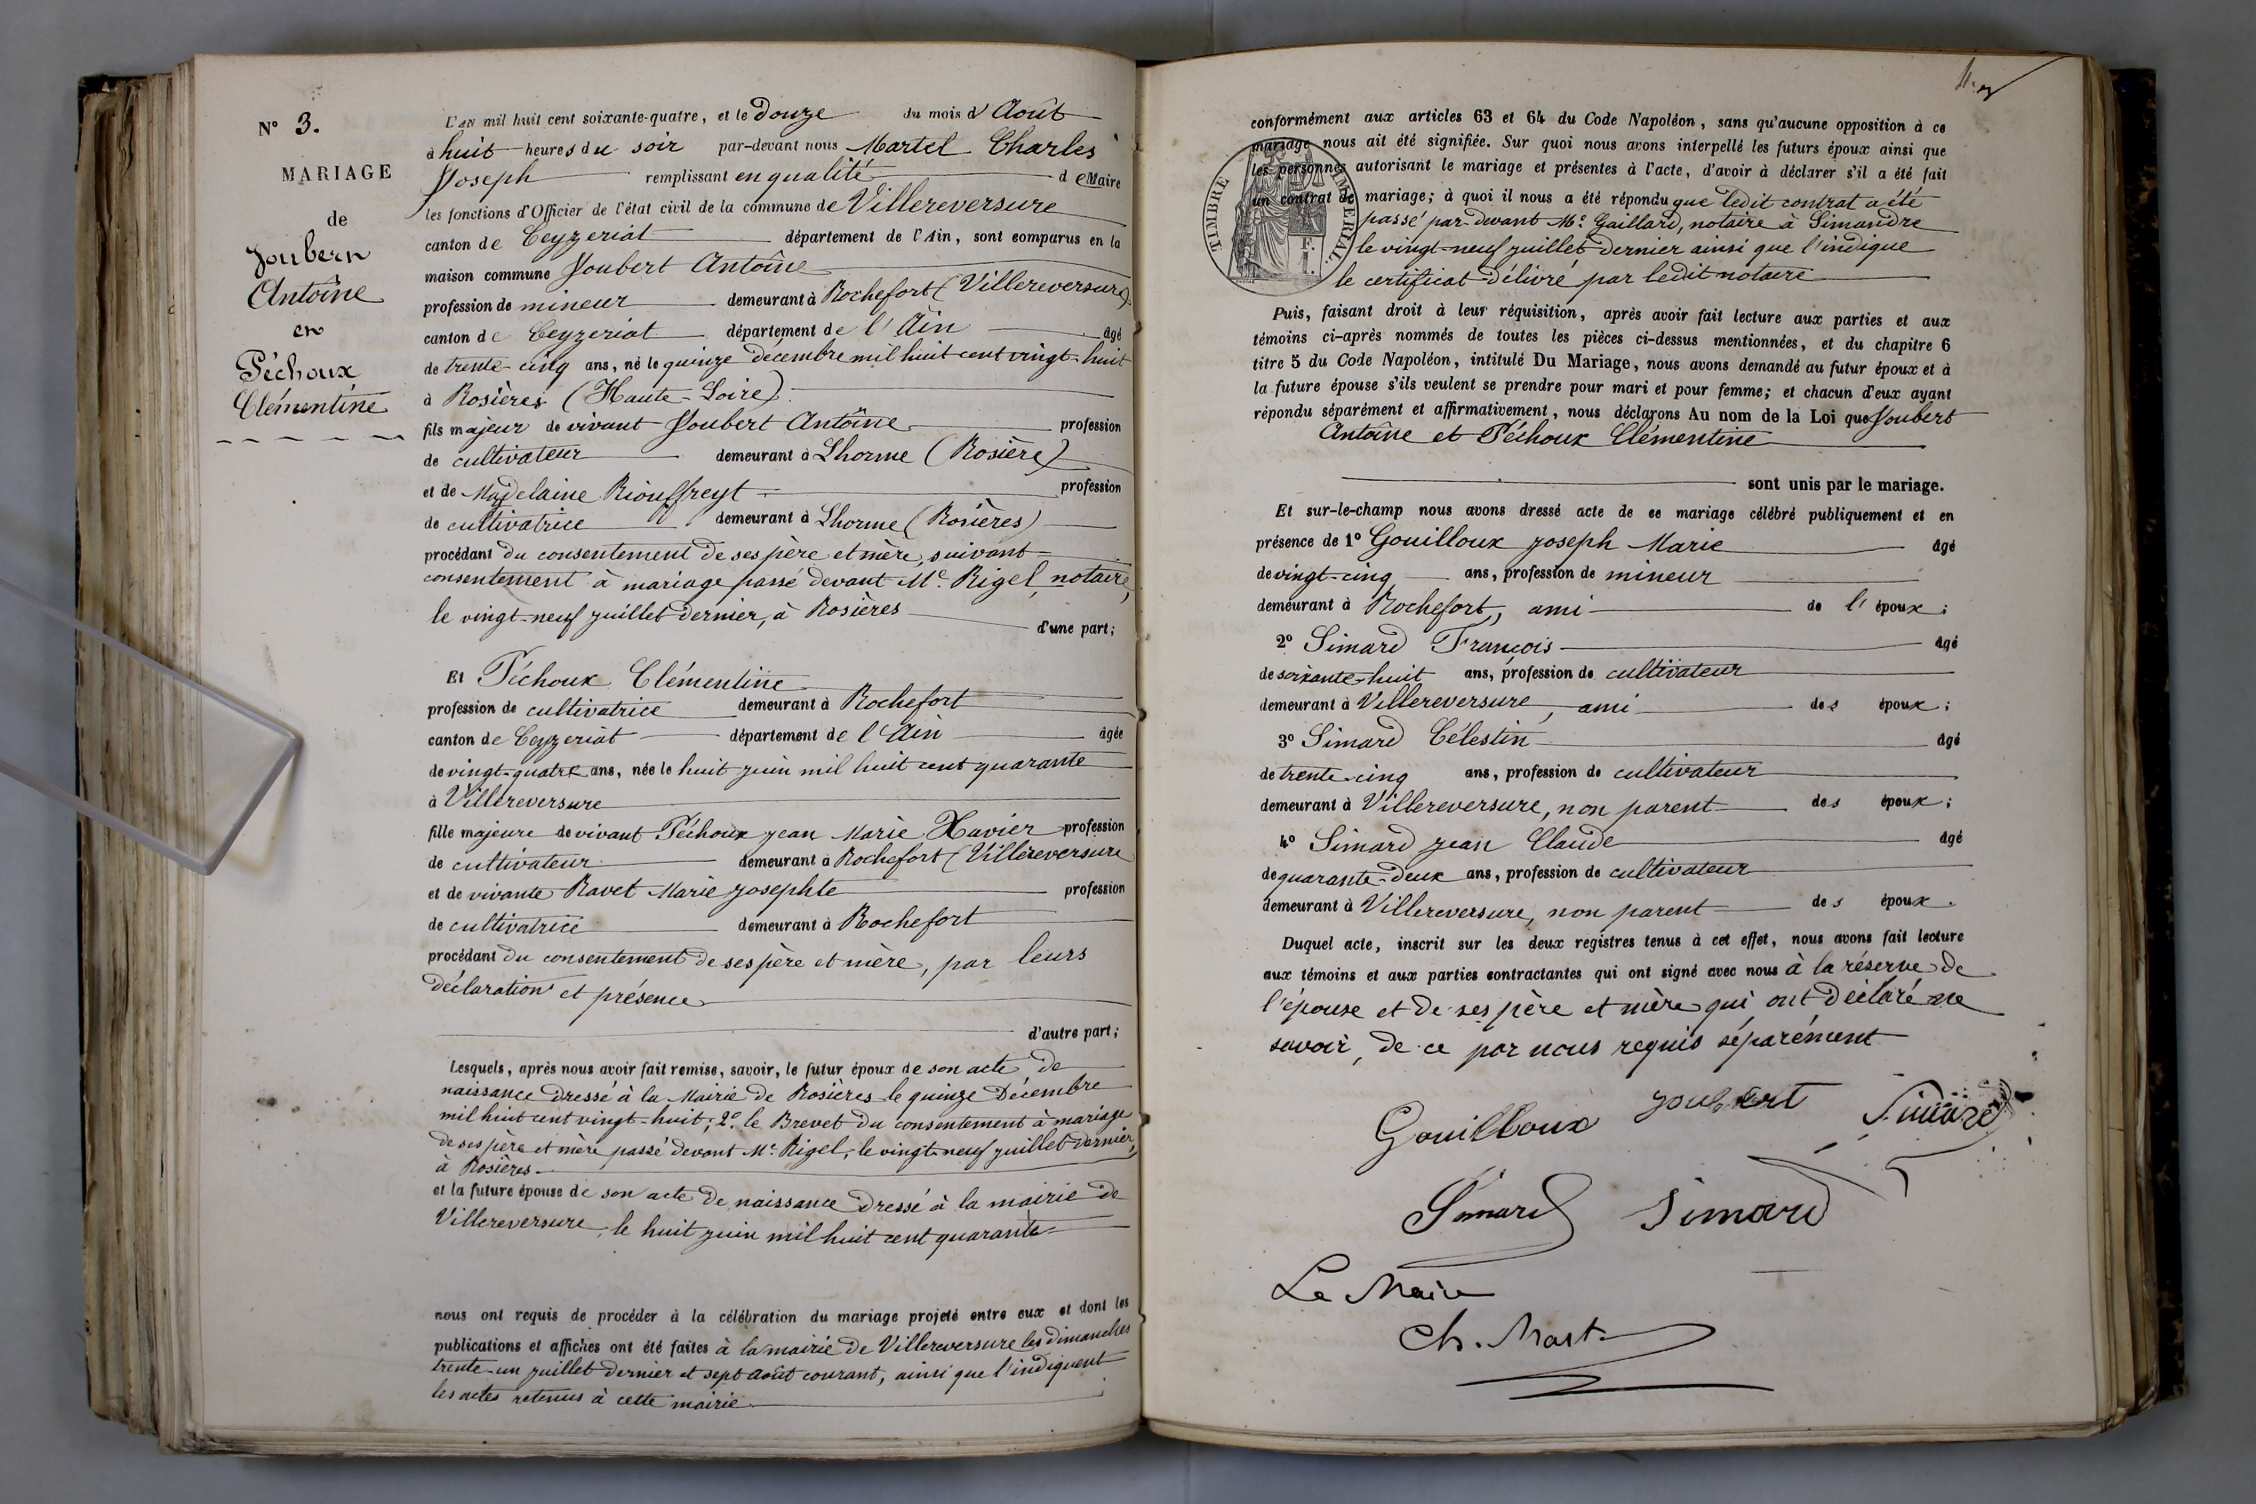 N° 3.
MARIAGE
de
Joubert
Antoîne
en
Péchoux
Clémentine
L'an mil huit cent soixante-quatre, et le Douze du mois d'Août
à huit heures du soir par-devant nous Martel Charles
Joseph remplissant en qualité de Maire
les fonctions d'Officier de l'état civil de la commune de Villereversure
canton de Ceyzeriat département de l'Ain, sont comparus en la
maison commune Joubert Antoîne
profession de mineur demeurant à Rochefort (Villereversure)
canton de Ceyzeriat département de l'Ain âgé
de trente-cinq ans, né le quinze décembre mil huit cent vingt-huit
à Rosières (Haute-Loire)
fils majeur de vivant Joubert Antoîne profession
de cultivateur demeurant à Lhorme (Rosière)
et de Magdelaine Riouffreyt profession
de cultivatrice demeurant à Lhorme (Rosières)
procédant du consentement de ses père et mère, suivant
consentement à mariage passé devant Me. Rigel, notaire,
le vingt-neuf juillet dernier, à Rosières
d'une part;
Et Péchoux Clémentine
profession de cultivatrice demeurant à Rochefort
canton de Ceyzeriat département de l'Ain âgée
de vingt-quatre ans, née le huit juin mil huit cent quarante
à Villereversure
fille majeure de vivant Péchoux jean Marie Xavier profession
de cultivateur demeurant à Rochefort (Villereversure
et de vivante Ravet Marie josephte profession
de cultivatrice demeurant à Rochefort
procédant du consentement de ses père et mère, par leurs
déclaration et présence
d'autre part;
Lesquels, après nous avoir fait remise, savoir, le futur époux de son acte de
naissance dressé à la Mairie de Rosières le quinze Décembre
mil huit cent vingt-huit; 2°. le Brevet du consentement à mariage
de ses père et mère passé devant Me. Rigel, le vingt-neuf juillet dernier,
à Rosières
et la future épouse de son acte de naissance dressé à la mairie de
Villereversure, le huit juin mil huit cent quarante
nous ont requis de procéder à la célébration du mariage projeté entre eux et dont les
publications et affiches ont été faites à la mairie de Villereversure les dimanches
trente-un juillet dernier et sept août courant, ainsi que l'indiquent
les actes retenus à cette mairie
conformément aux articles 63 et 64 du Code Napoléon, sans qu'aucune opposition à ce
mariage nous ait été signifiée. Sur quoi nous avons interpellé les futurs époux ainsi que
les personnes autorisant le mariage et présentes à l'acte, d'avoir à déclarer s'il a été fait
un contrat de mariage; à quoi il nous a été répondu que ledit contrat a été
passé par-devant Me. Gaillard, notaire à Simandre
le vingt-neuf juillet dernier ainsi que l'indique
le certificat délivré par ledit notaire
TIMBRE IMPÉRIAL.
Puis, faisant droit à leur réquisition, après avoir fait lecture aux parties et aux
témoins ci-après nommés de toutes les pièces ci-dessus mentionnées, et du chapitre 6
titre 5 du Code Napoléon, intitulé Du Mariage, nous avons demandé au futur époux et à
la future épouse s'ils veulent se prendre pour mari et pour femme; et chacun d'eux ayant
répondu séparément et affirmativement, nous déclarons Au nom de la Loi que Joubert
Antoîne et Péchoux Clémentine
sont unis par le mariage.
Et sur-le-champ nous avons dressé acte de ce mariage célébré publiquement et en
présence de 1° Gouilloux joseph Marie âgé
de vingt-cinq ans, profession de mineur
demeurant à Rochefort, ami de l'époux;
2° Simard François âgé
de soixante-huit ans, profession de cultivateur
demeurant à Villereversure, ami des époux;
3° Simard Célestin âgé
de trente-cinq ans, profession de cultivateur
demeurant à Villereversure, non parent des époux;
4° Simard jean Claude âgé
de quarante-deux ans, profession de cultivateur
demeurant à Villereversure, non parent des époux.
Duquel acte, inscrit sur les deux registres tenus à cet effet, nous avons fait lecture
aux témoins et aux parties contractantes qui ont signé avec nous à la réserve de
l'épouse et de ses père et mère qui ont déclaré ne
savoir, de ce par nous requis séparément
Gouilloux joubert Simard
Simard Simard
Le Maire
Ch. Mart